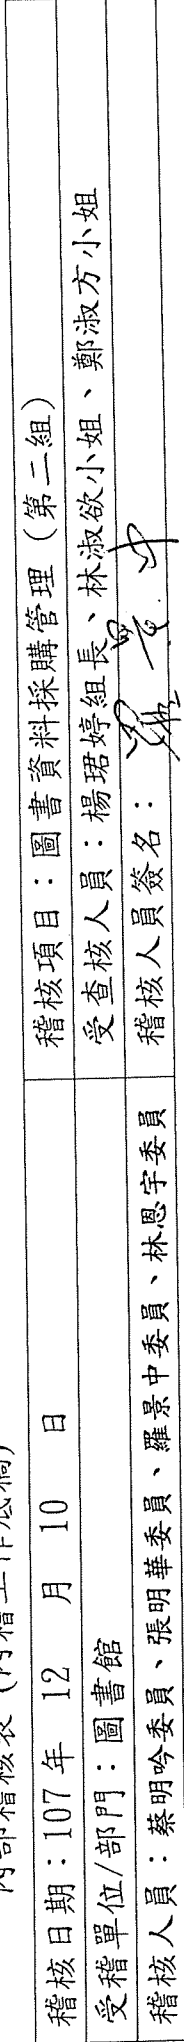 內部稽核表(內稽工作底稿)
稽核日期：107 年 12 月 10 日
稽核項目：圖書資料採購管理（第二組）
受稽單位/部門：圖書館
受查核人員：楊珺婷組長、林淑欲小姐、鄭淑方小姐
稽核人員：蔡明吟委員、張明華委員、羅景中委員、林恩宇委員
稽核人員簽名：羅景中